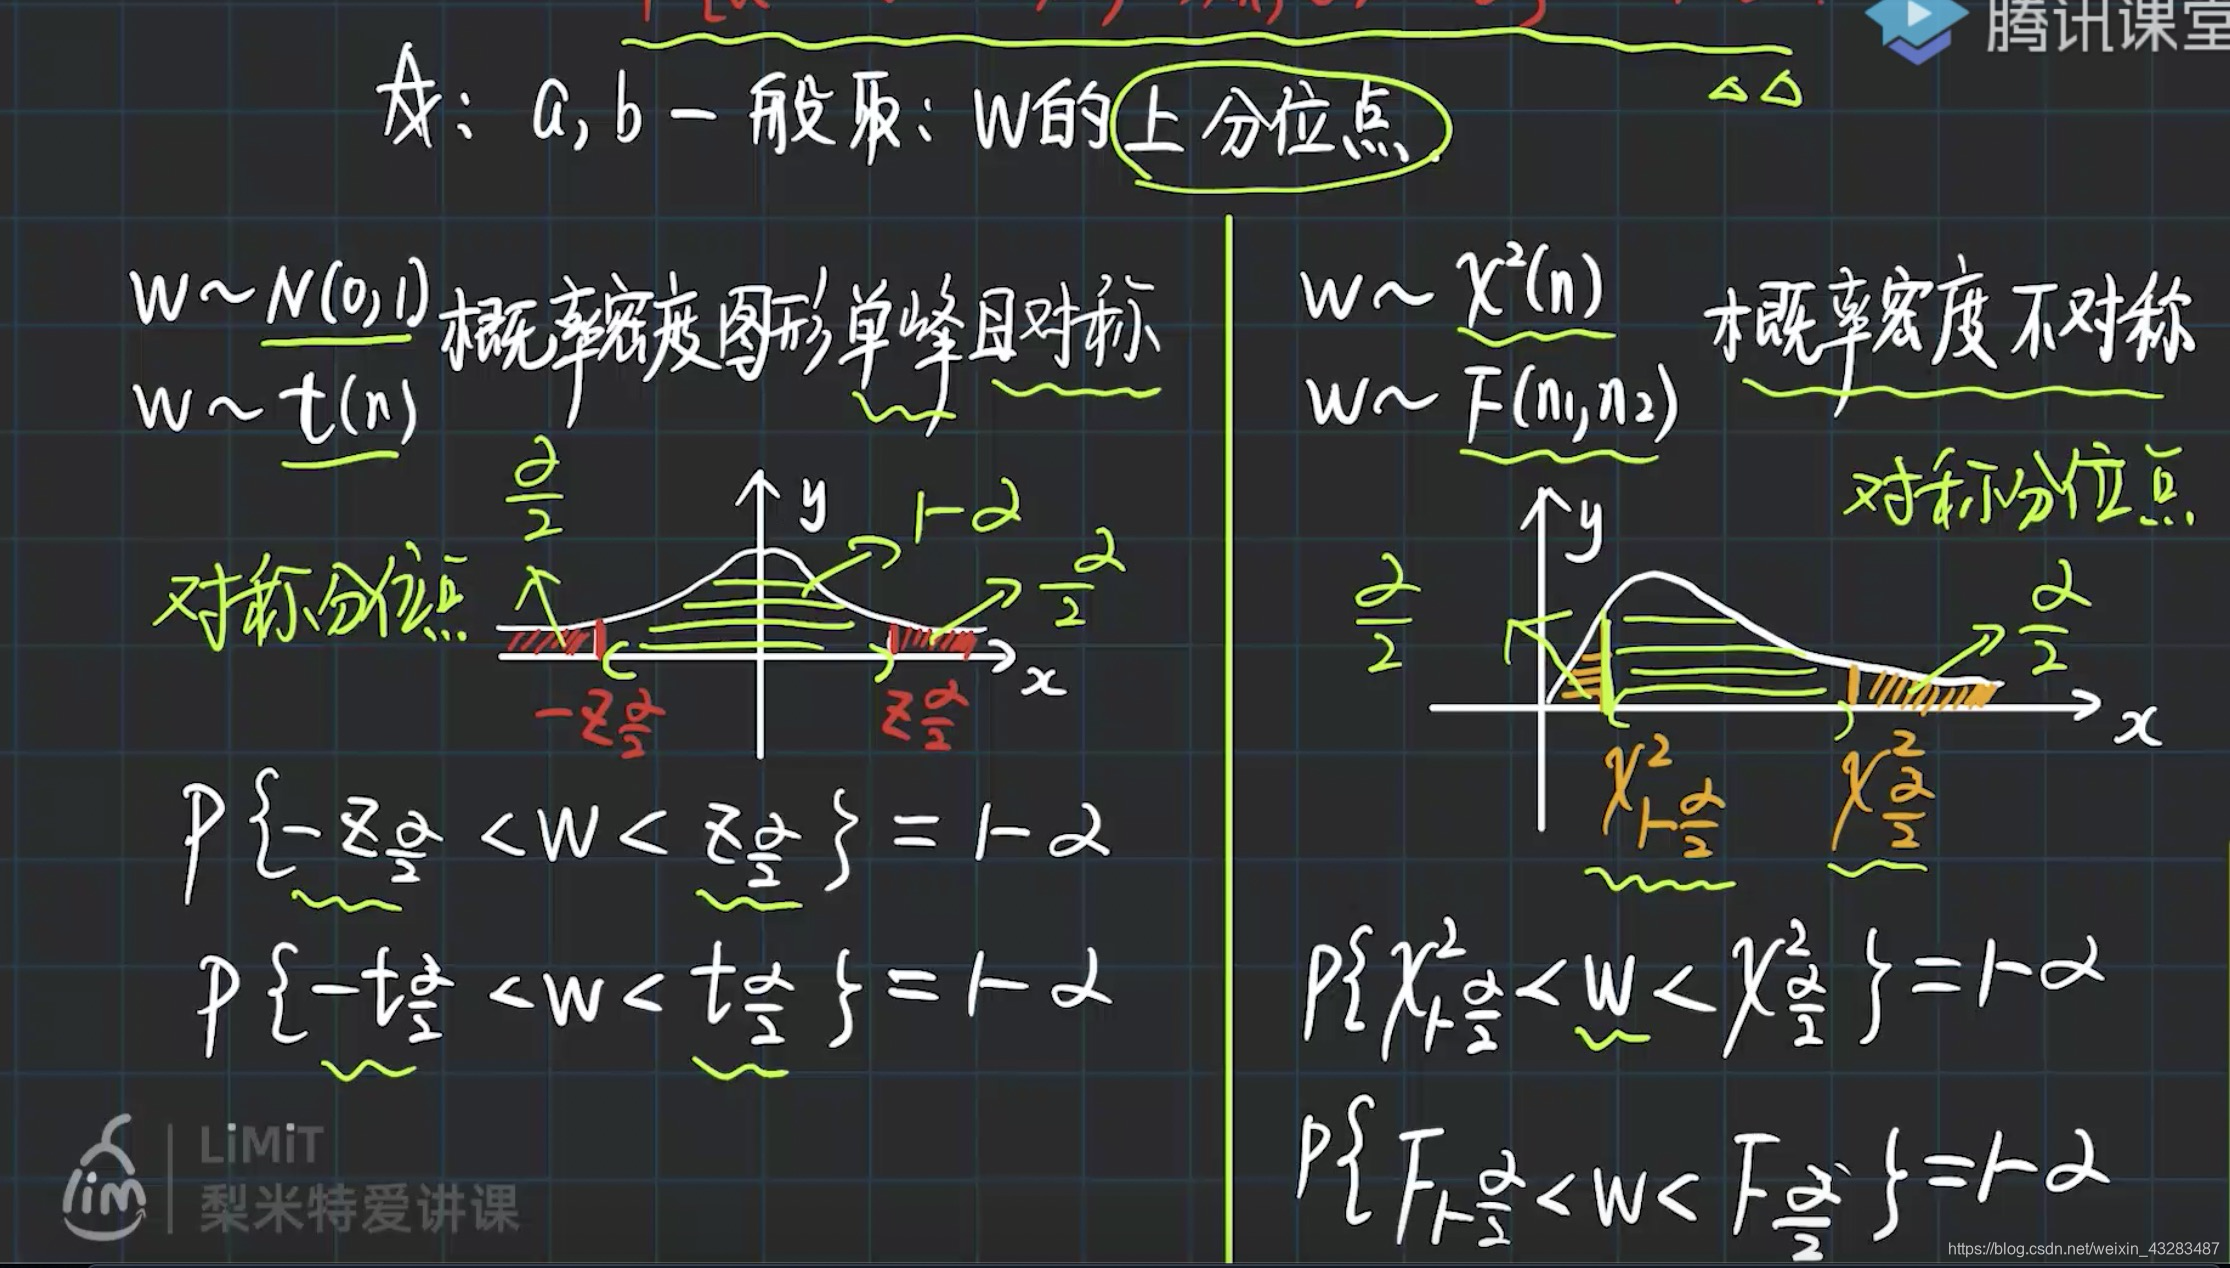 腾讯课堂
☆: a, b 一般取: W的上分位点.
W ~ N(0,1) 概率密度图形单峰且对称
W ~ t(n)
对称分位点
α/2
y
1-α
α/2
x
-Z_{α/2}
Z_{α/2}
P{-Z_{α/2} < W < Z_{α/2}} = 1-α
P{-t_{α/2} < W < t_{α/2}} = 1-α
W ~ χ²(n) 概率密度不对称
W ~ F(n₁,n₂)
对称分位点
α/2
y
α/2
x
χ²_{1-α/2}
χ²_{α/2}
P{χ²_{1-α/2} < W < χ²_{α/2}} = 1-α
P{F_{1-α/2} < W < F_{α/2}} = 1-α
lim
LiMiT
梨米特爱讲课
https://blog.csdn.net/weixin_43283487